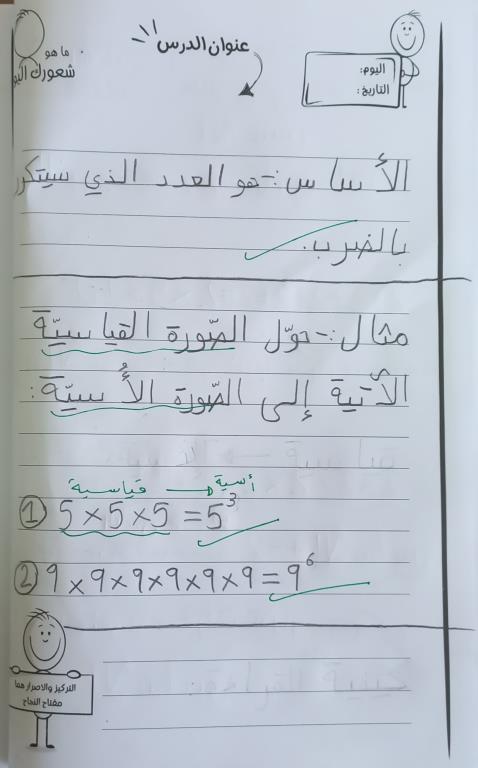 عنوان الدرس
ما هو
شعورك
اليوم:
التاريخ:
الأساس:- هو العدد الذي سيتكرر
بالضرب.
مثال:- حوّل الصّورة القياسيّة
الآتية إلى الصّورة الأُسيّة:
قياسية → أسية
① 5 × 5 × 5 = 5³
② 9 × 9 × 9 × 9 × 9 × 9 = 9⁶
التركيز والاصرار هما
مفتاح النجاح